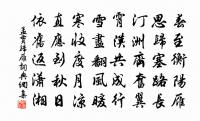 春至衡陽雁
思歸塞路長
汀洲齊奮翼
霄漢共成行
雪盡翻風暖
寒收度月涼
直應到秋日
依舊返瀟湘
孟貫歸雁詞典網集